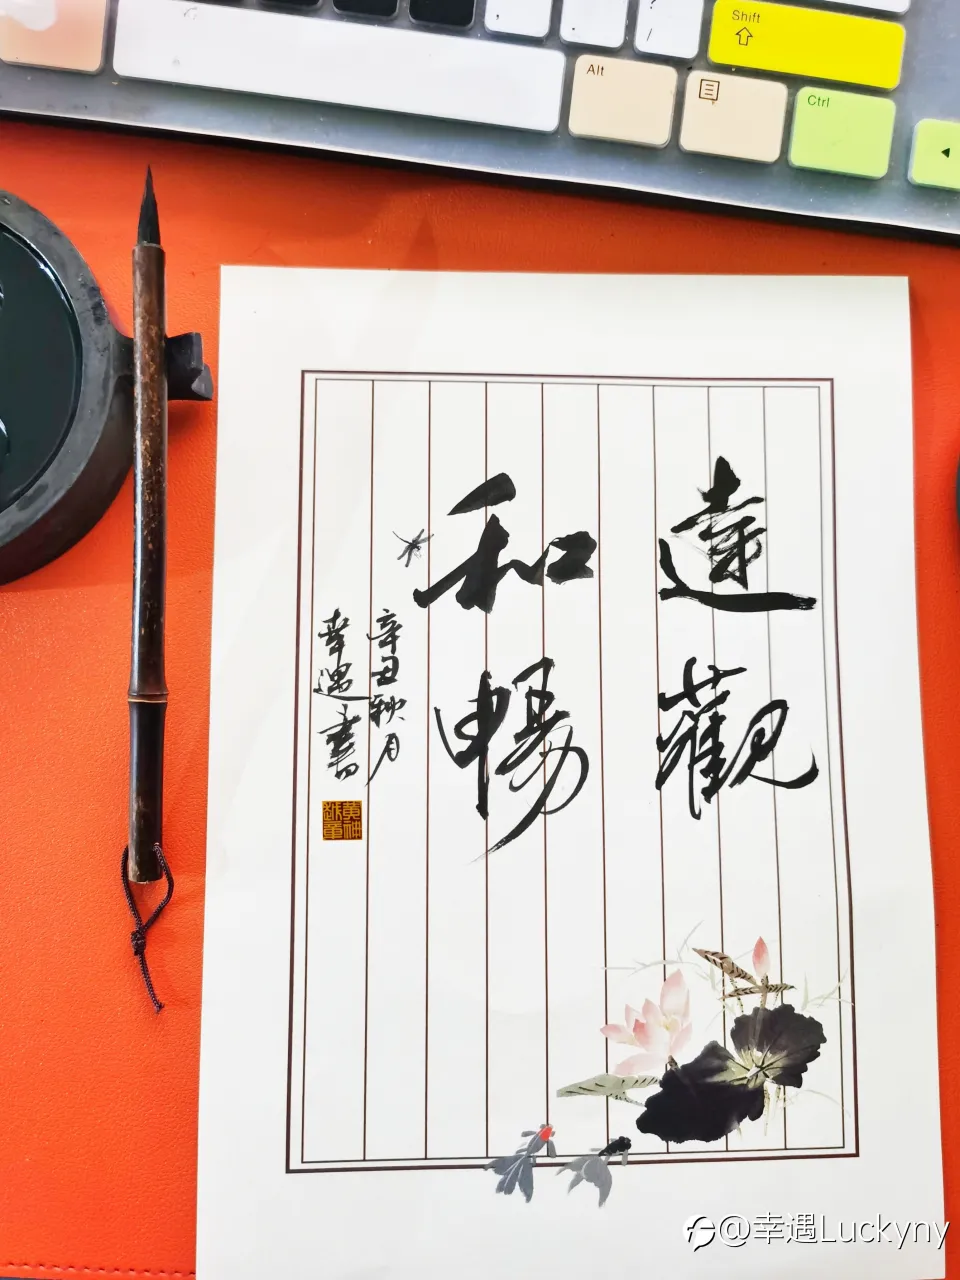 Shift
Alt
Ctrl
達觀
和暢
辛丑秋月
幸遇書
黄神
越章
@幸遇Luckyny